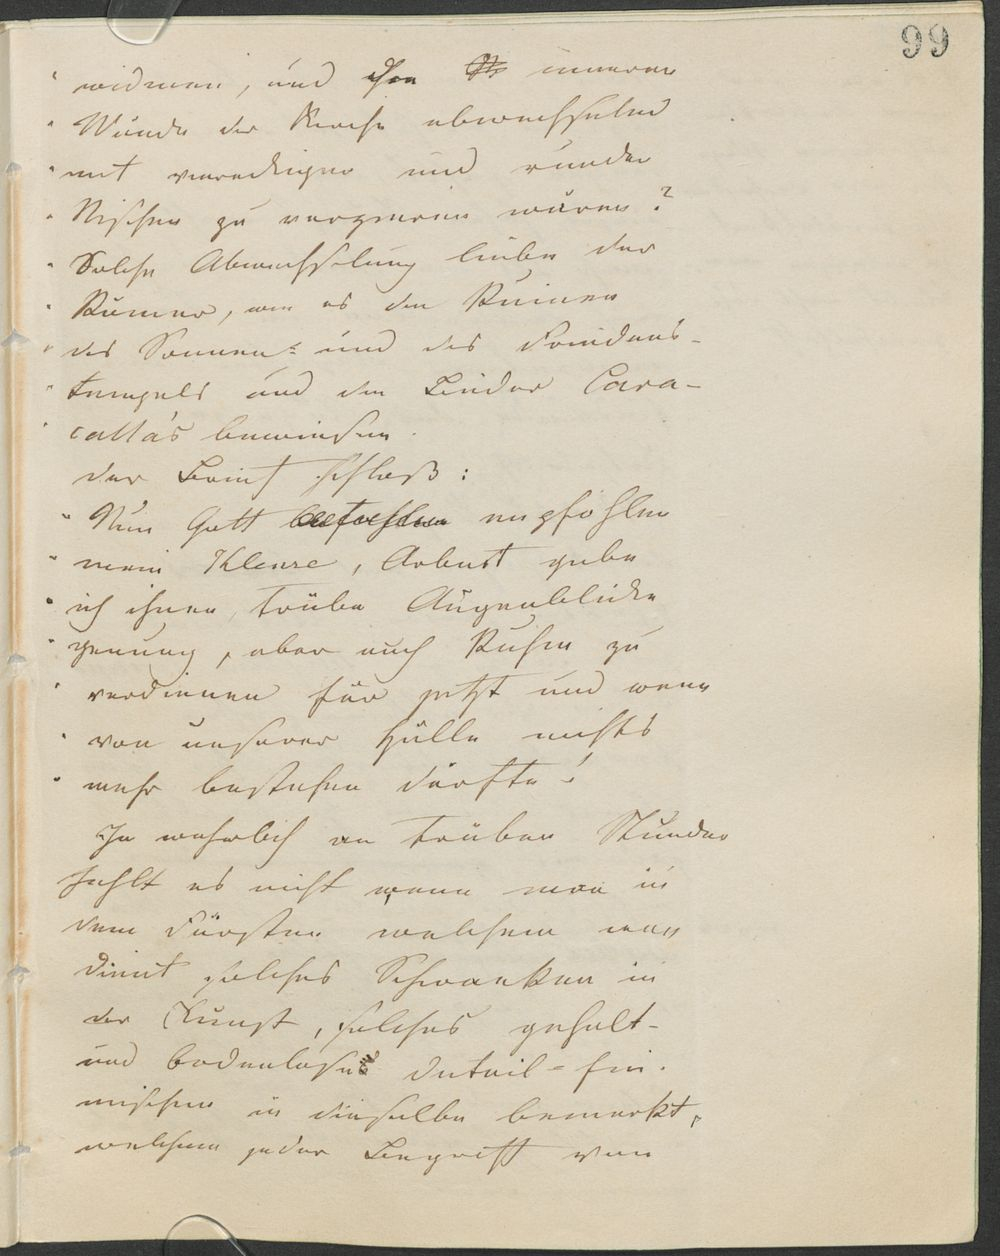 99
" widmen, und ihre inneren
" Wände der Kirche abwechselnd
" mit viereckigen und runden
" Nischen zu verzieren wären?
" Solche Abwechslung liebten der
" Römer, wie es den Ruinen
" des Sonnen- und des Friedens-
" tempels und den Bäder Cara-
" calla's beweisen.
Der Brief schloß:
" Nun Gott befohlen empfohlen
" mein Klenze, Arbeit gebe
" ich ihnen, trübe Augenblicke
" genung, aber auch Ruhm zu
" verdienen für jetzt und wenn
" von unserer Hülle nichts
" mehr bestehen dürfte!
Ja wahrlich an trüben Stunden
fehlt es nicht wenn man in
dem Fürsten welchem man
dient solches Schwanken in
der Kunst, solches gehalt-
und bodenloses Detail-Ein-
mischen in dieselbe bemerkt,
welchem jeder Begriff von